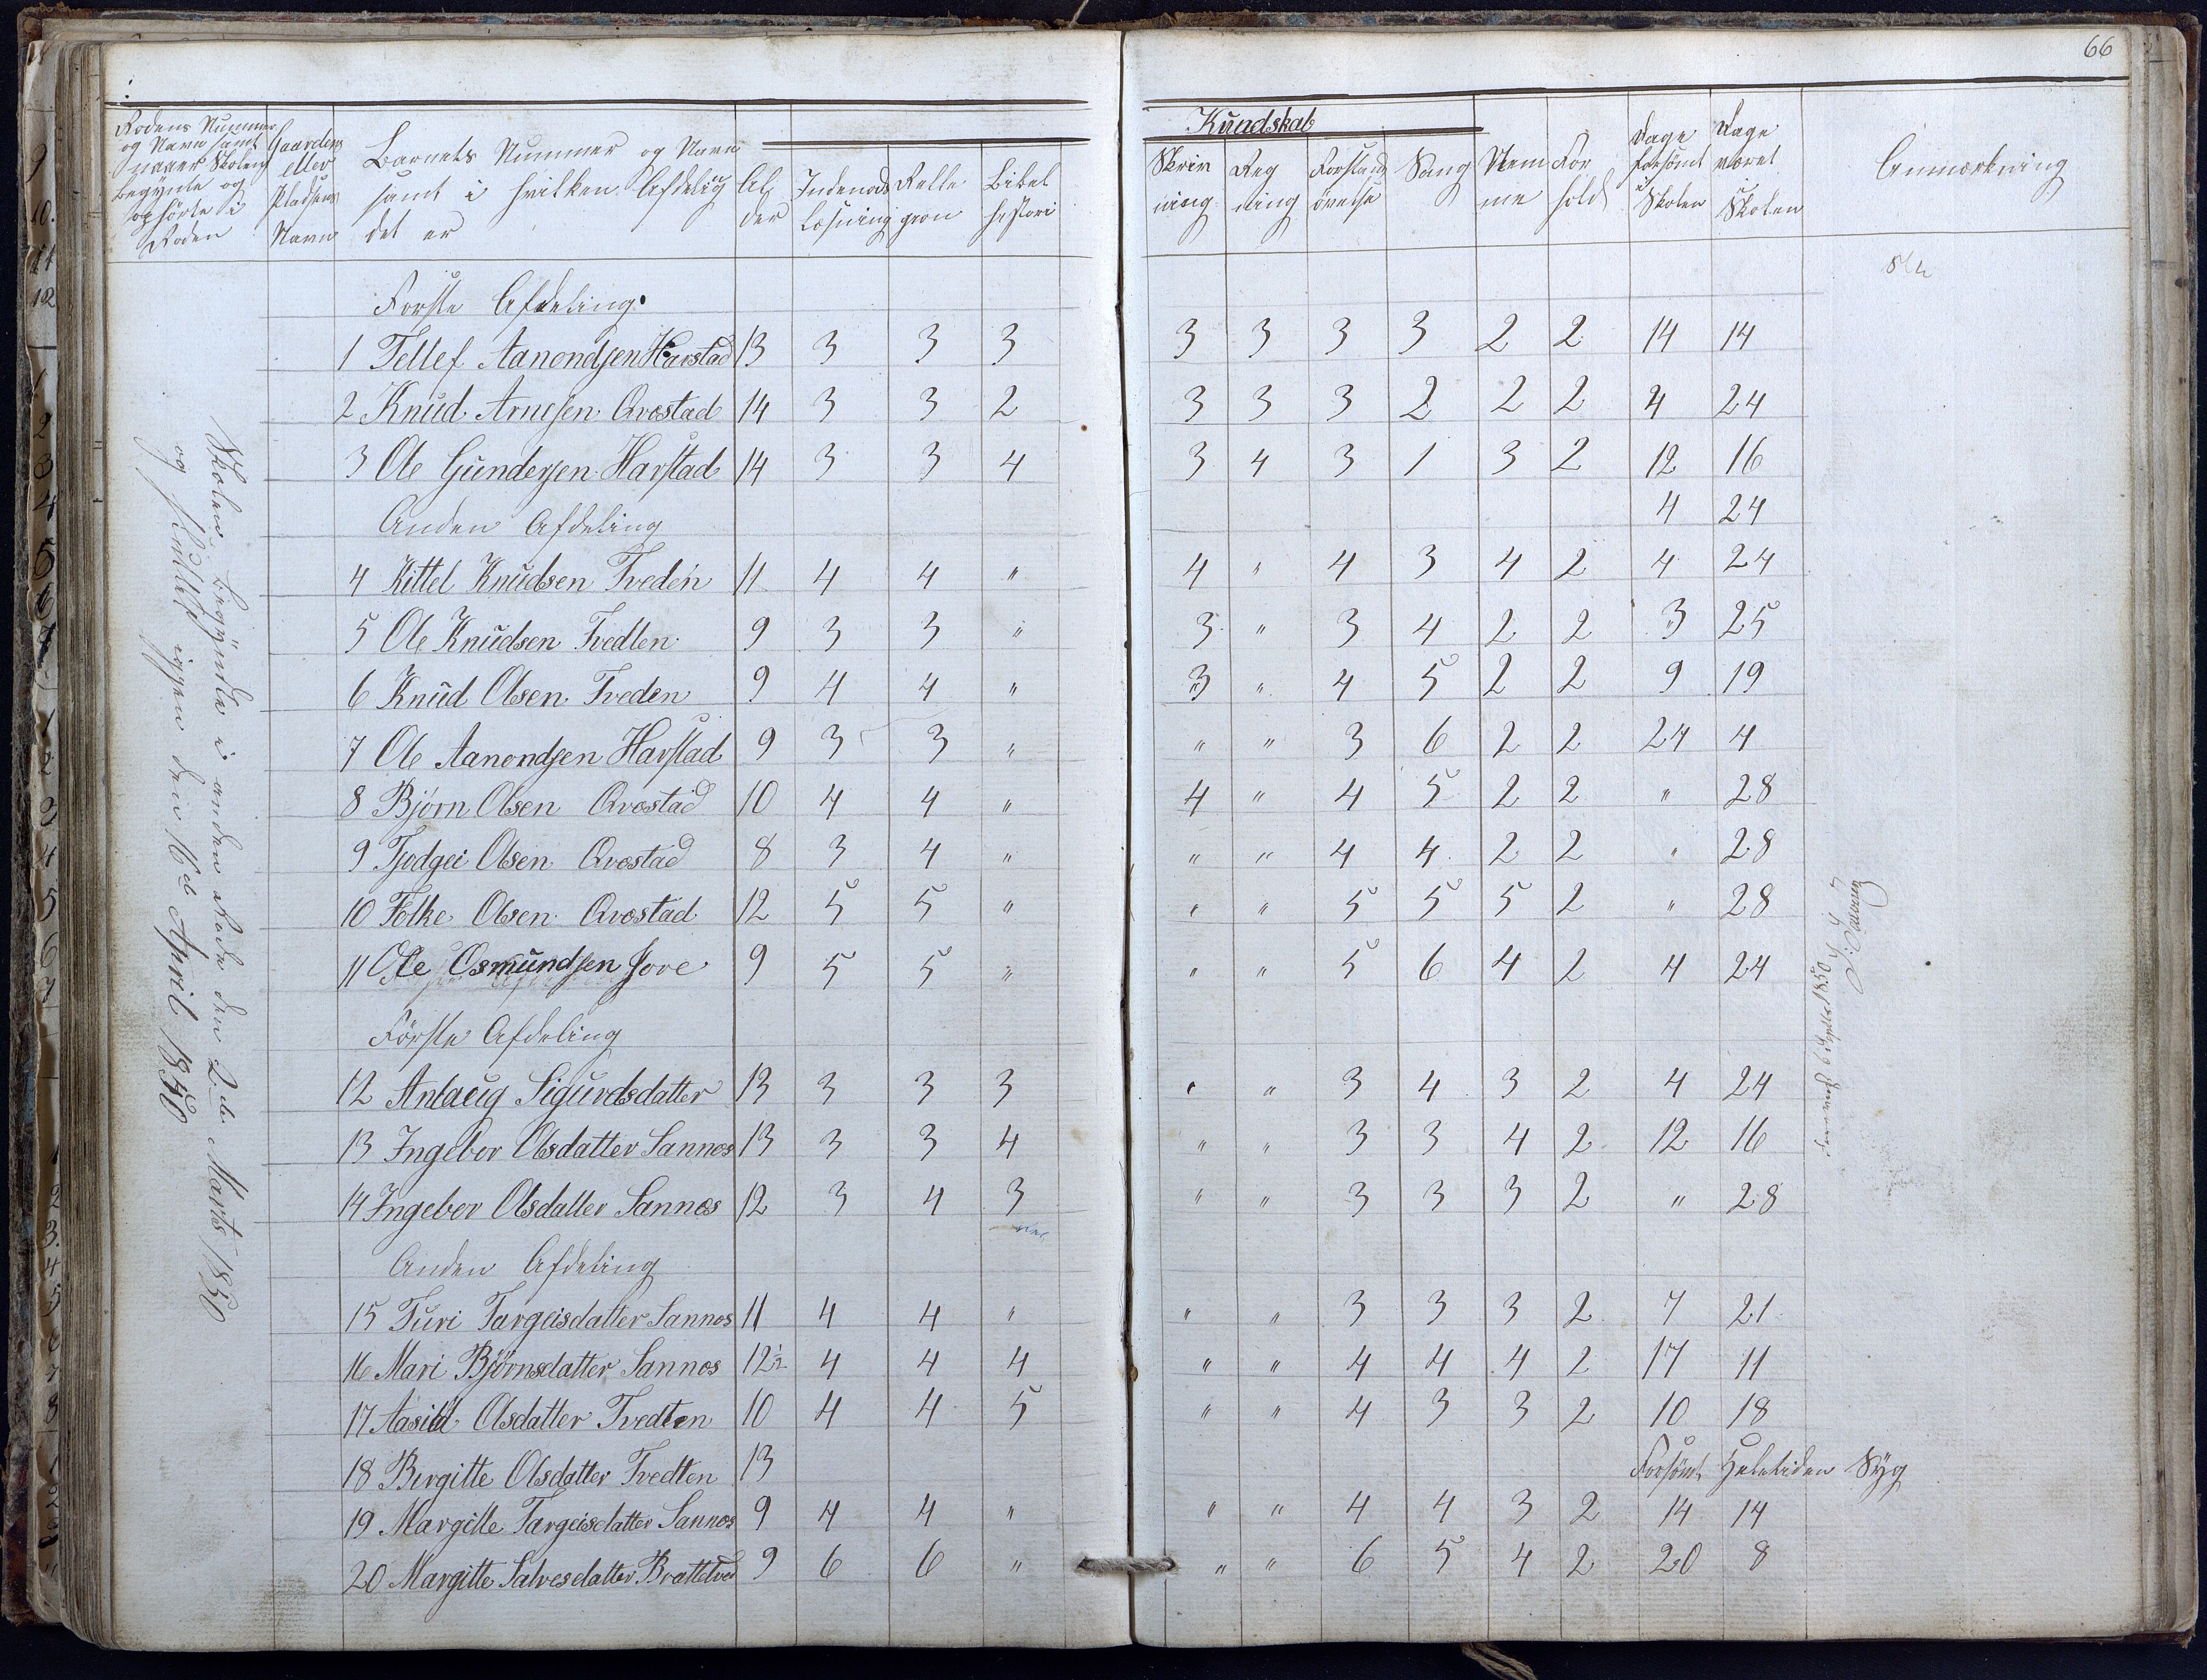 66
Rodens Nummer og Navn samt naaer Skolen begynte og ophörte i Roden
Gaardens eller Pladsens Navn
Barnets Nummer og Navn samt i hvilken Afdeling det er
Alder
Indenads Læsning
Religion
Bibelhistori
Kundskab
Skrivning
Regning
Forstandövelse
Sang
Nemme
Forhold
Dage forsömt i Skolen
Dage været i Skolen
Anmærkning
Skolen begyndte i anden Rode den 2de Marts 1850
og sluttet igjen den 16de April 1850
Forste Afdeling.
1 Tellef Aanondsen Harstad 13 3 3 3 3 3 3 3 2 2 14 14
2 Knud Arnesen Qvostad 14 3 3 2 3 3 3 2 2 2 4 24
3 Ole Gundersen Harstad 14 3 3 4 3 4 3 1 3 2 12 16
Anden Afdeling 4 24
4 Kittel Knudsen Tveden 11 4 4 " 4 " 4 3 4 2 4 24
5 Ole Knudsen Tvedten 9 3 3 " 3 " 3 4 2 2 3 25
6 Knud Olsen Tveden 9 4 4 " 3 " 4 5 2 2 9 19
7 Ole Aanondsen Harstad 9 3 3 " " " 3 6 2 2 24 4
8 Bjorn Olsen Qvostad 10 4 4 " 4 " 4 5 2 2 " 28
9 Tjodgei Olsen Qvostad 8 3 4 " " " 4 4 2 2 " 28
10 Folke Olsen Qvostad 12 5 5 " " " 5 5 5 2 " 28
11 Ole Osmundsen Jore 9 5 5 " " " 5 6 4 2 4 24
Förste Afdeling
12 Anlaug Sigurdsdatter 13 3 3 3 " " 3 4 3 2 4 24
13 Ingebor Olsdatter Sannes 13 3 3 4 " " 3 3 4 2 12 16
14 Ingebor Olsdatter Sannes 12 3 4 3 " " 3 3 3 2 " 28
Anden Afdeling
15 Turi Targeisdatter Sannes 11 4 4 " " " 3 3 3 2 7 21
16 Mari Björnsdatter Sannos 12½ 4 4 4 " " 4 4 4 2 17 11
17 Aasild Olsdatter Tvedten 10 4 4 5 " " 4 3 3 2 10 18
18 Birgitte Olsdatter Tvedten 13 Forsömt Heletiden Syg
19 Margitte Targeisdatter Sannos 9 4 4 " " " 4 4 3 2 14 14
20 Margitte Salvesdatter Brattetved 9 6 6 " " " 6 5 4 2 20 8